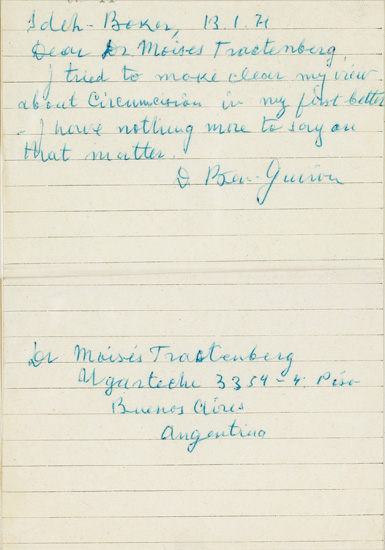 Sdeh-Boker, 13.1.71
Dear Dr Moises Tractenberg,
I tried to make clear my view
about Circumcision in my first letter
- I have nothing more to say on
that matter.
D. Ben-Gurion
Dr Moisés Tractenberg
Ugarteche 3354-4. Piso
Buenos Aires
Argentina